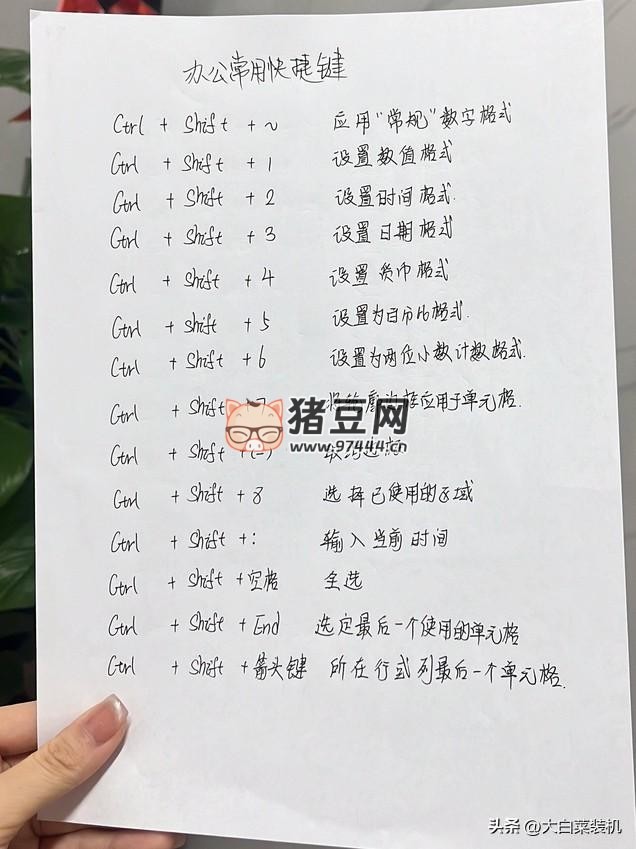 办公常用快捷键
Ctrl + Shift + ~ 应用"常规"数字格式
Ctrl + Shift + 1 设置数值格式
Ctrl + Shift + 2 设置时间格式.
Ctrl + Shift + 3 设置日期格式
Ctrl + Shift + 4 设置货币格式
Ctrl + Shift + 5 设置为百分比格式.
Ctrl + Shift + 6 设置为两位小数计数格式.
Ctrl + Shift 应用于单元格.
猪豆网
www.97444.cn
Ctrl + Shift
Ctrl + Shift + 8 选择已使用的区域
Ctrl + Shift + : 输入当前时间
Ctrl + Shift + 空格 全选
Ctrl + Shift + End 选定最后一个使用的单元格
Ctrl + Shift + 箭头键 所在行或列最后一个单元格.
头条 @大白菜装机